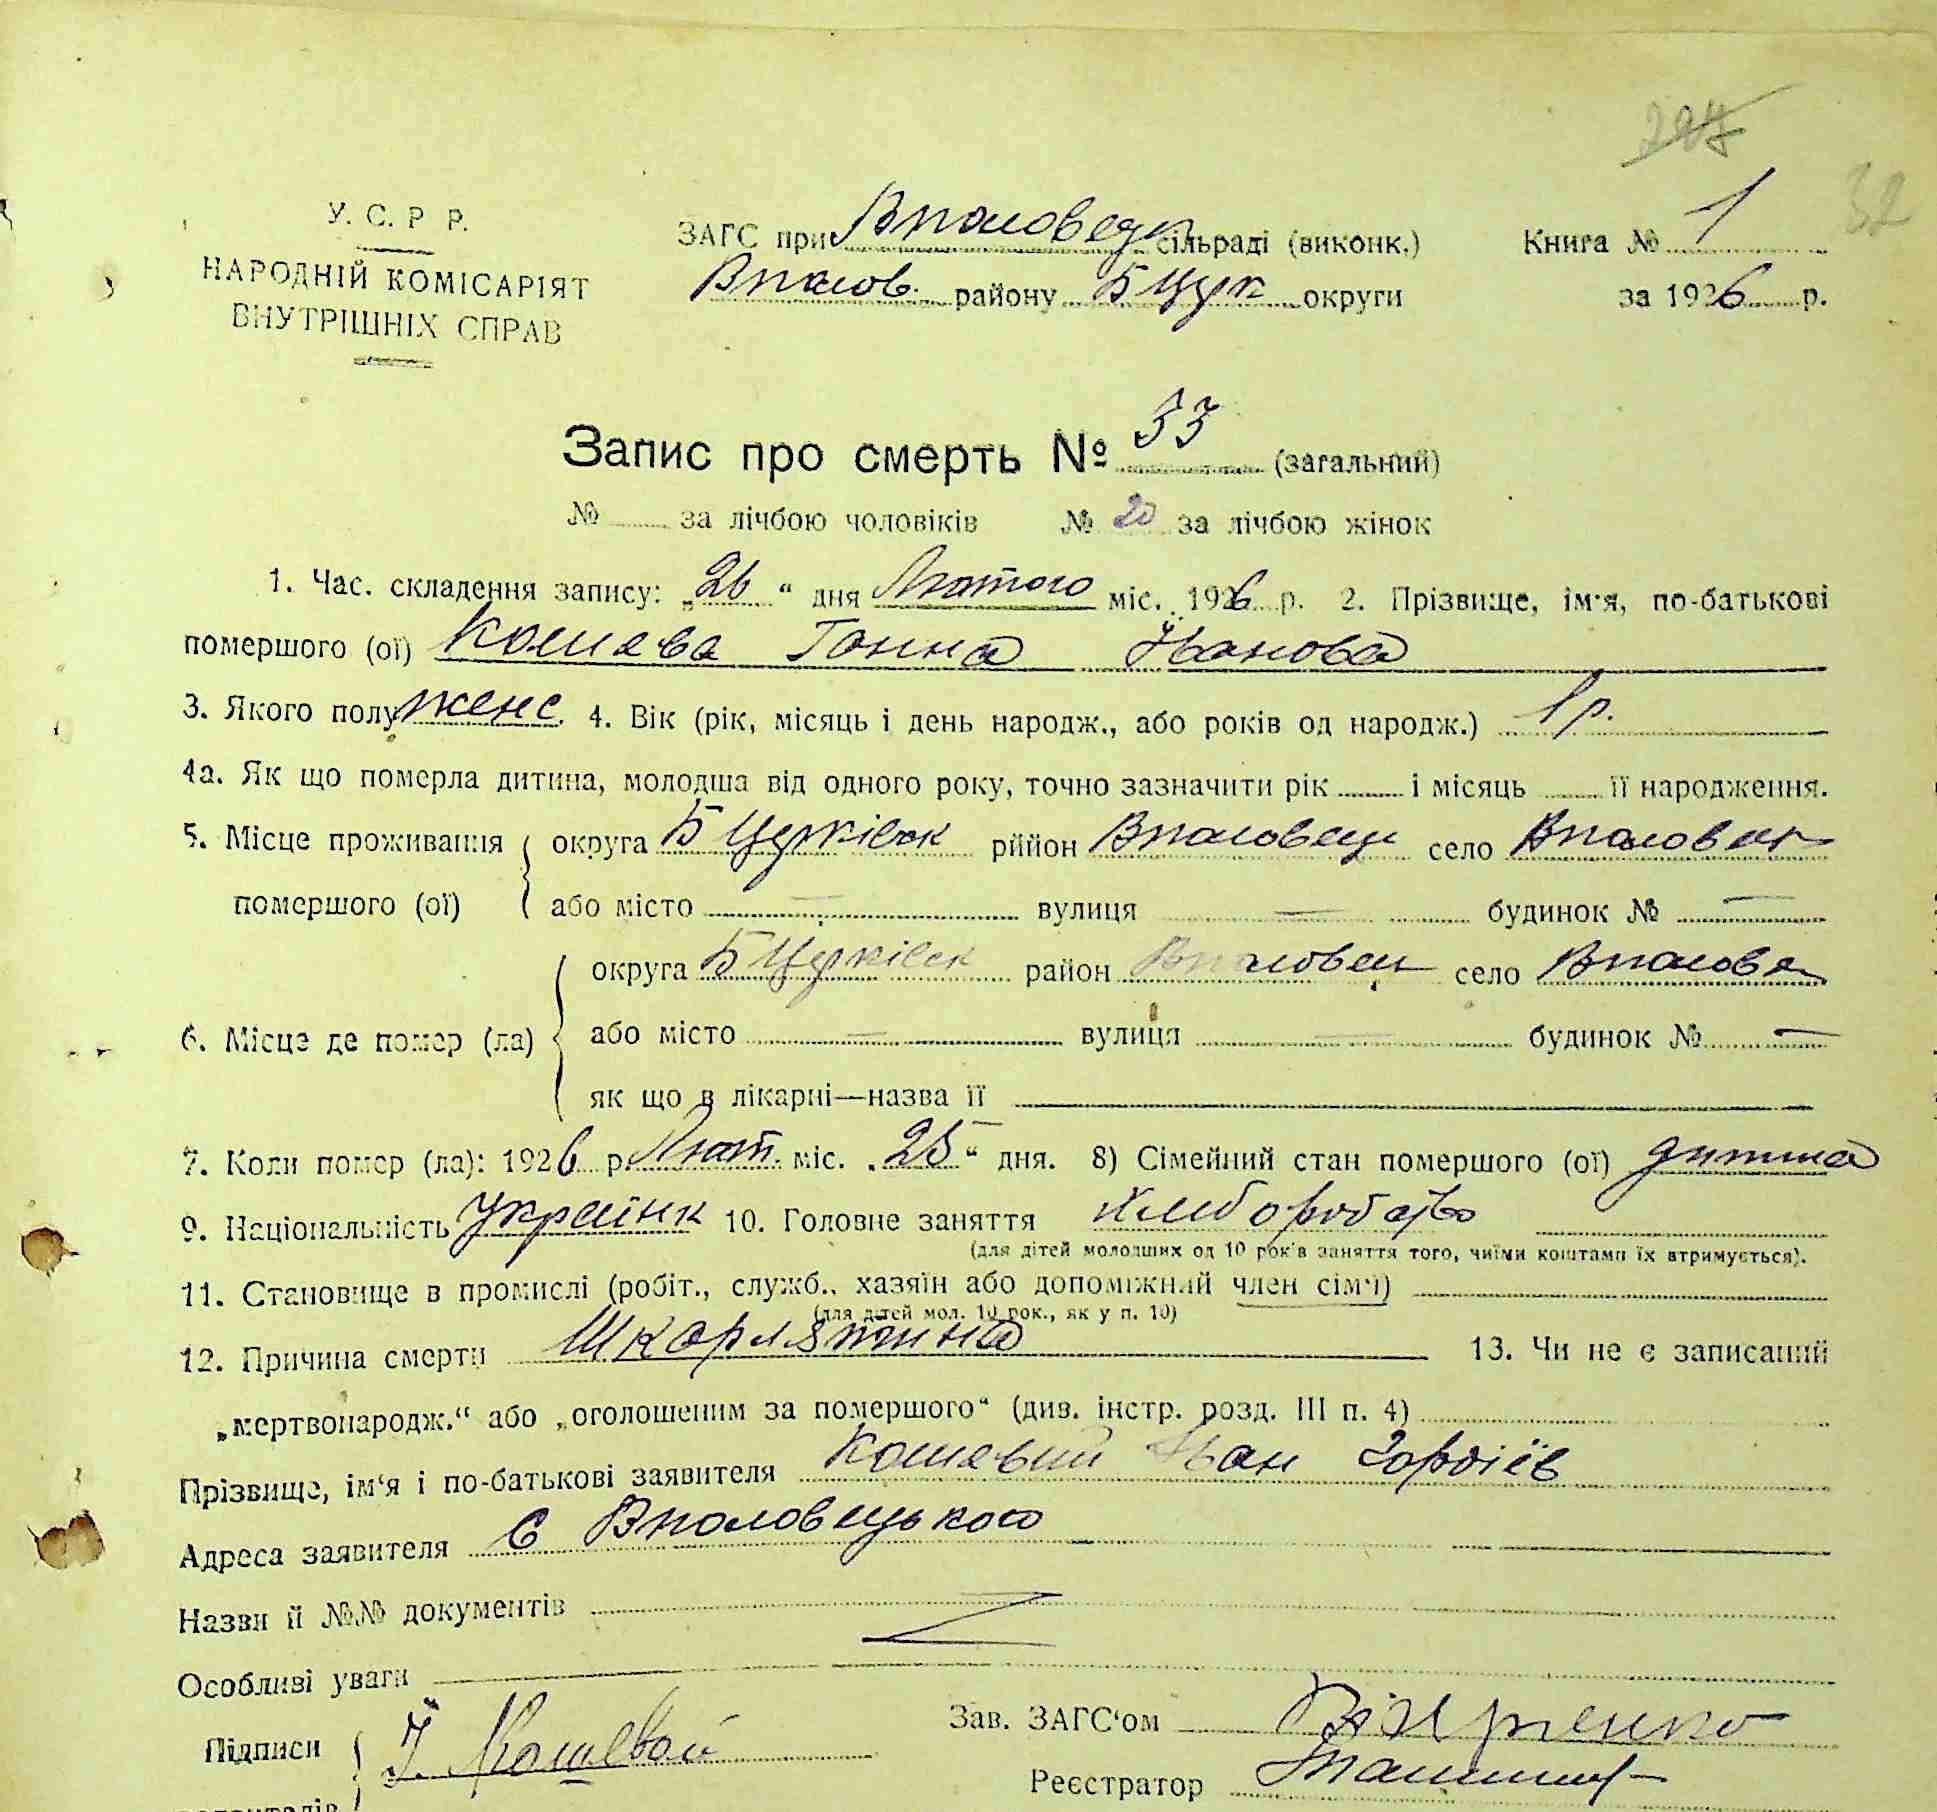 247
32
У. С. Р Р.
НАРОДНІЙ КОМІСАРІЯТ
ВНУТРІШНІХ СПРАВ
ЗАГС при Вполовецк сільраді (виконк.) Книга № 1
Вполов. району БЦук округи за 1926 р.
Запис про смерть № 33 (загальний)
№ за лічбою чоловіків № 20 за лічбою жінок
1. Час. складення запису: „26“ дня Лютого міс. 1926 р. 2. Прізвище, ім'я, по-батькові
помершого (ої) Кошева Ганна Іванова
3. Якого полу женс. 4. Вік (рік, місяць і день народж., або років од народж.) 1 р.
4а. Як що померла дитина, молодша від одного року, точно зазначити рік і місяць її народження.
5. Місце проживання округа БЦуківск рййон Вполовец село Вполовец
помершого (ої) або місто — вулиця — будинок № —
округа БЦуківск район Вполовец село Вполов
6. Місце де помер (ла) або місто — вулиця — будинок № —
як що в лікарні—назва її
7. Коли помер (ла): 1926 р. Лют. міс. „25“ дня. 8) Сімейний стан помершого (ої) дитина
9. Національність Українк 10. Головне заняття Хлиборобство
(для дітей молодших од 10 рок'в заняття того, чиїми коштами їх втримується).
11. Становище в промислі (робіт., служб., хазяїн або допоміжний член сім'ї)
(для дітей мол. 10 рок., як у п. 10)
12. Причина смерти Шкорлятина 13. Чи не є записаний
„мертвонародж.“ або „оголошеним за помершого“ (див. інстр. розд. III п. 4)
Прізвище, ім'я і по-батькові заявителя Кошевий Іван Гордіїв
Адреса заявителя С Вполовецького
Назви й №№ документів
Особливі уваги
Підписи І. Кошевой Зав. ЗАГС'ом
Реєстратор